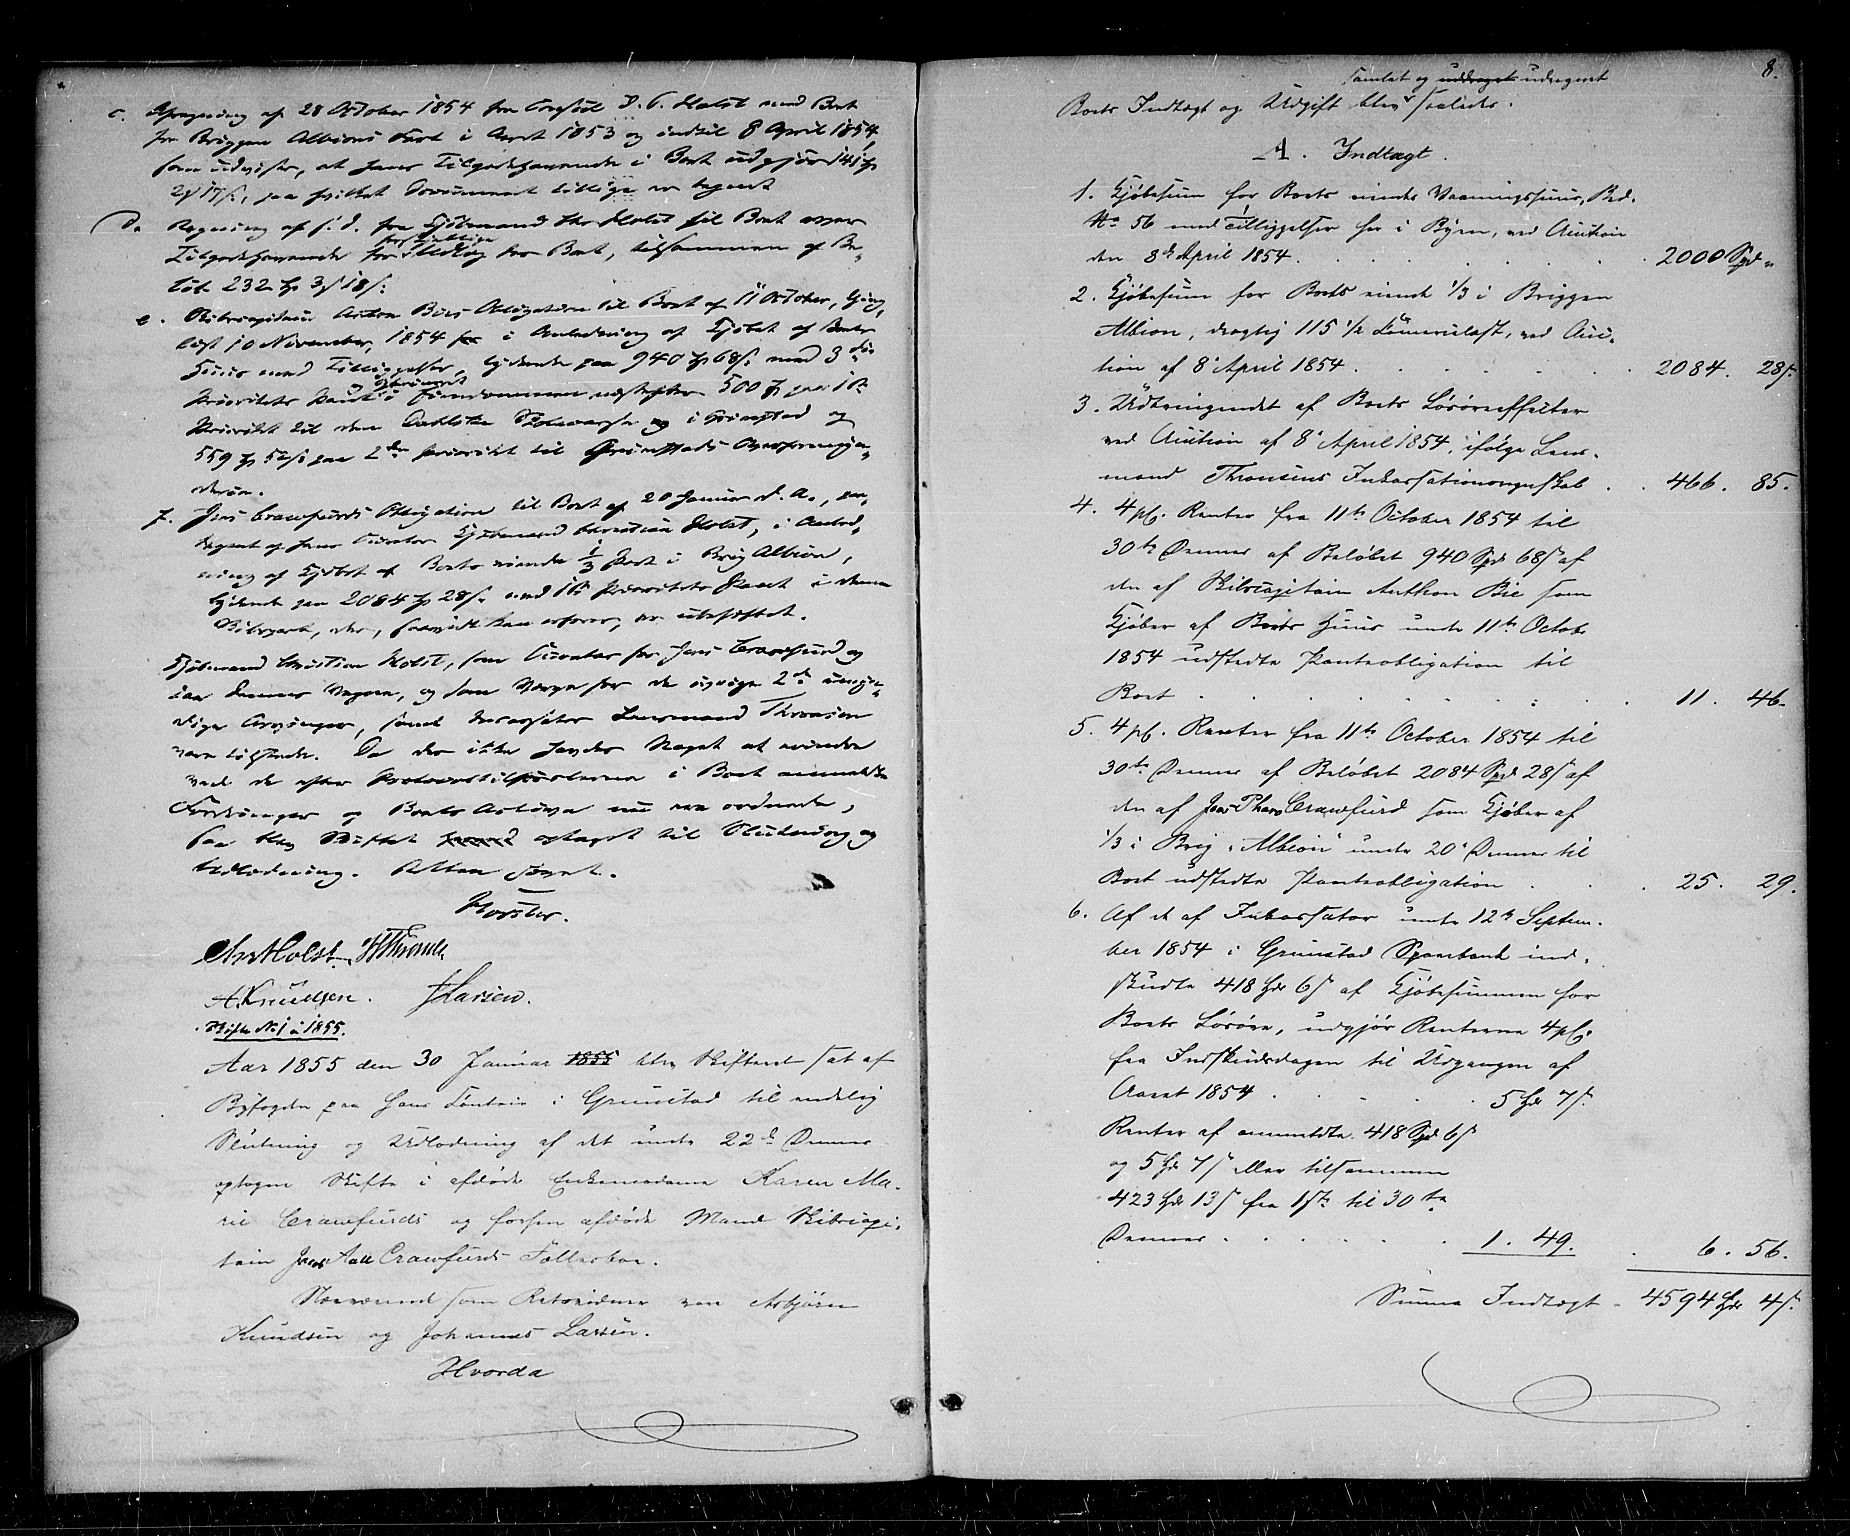 c. Afregning af 28 October 1854 fra Consul D. C. Holst med Boet
for Briggen Albions Fart i Aaret 1853 og indtil 8 April 1854,
som udviser, at hans Tilgodehavende i Boet udgjør 141
2 17 s., paa hvilket Document tillige er tegnet
D. Regning af s. d. fra Kjøbmand Chr Holst til Boet over
Tilgodehavende for forskjellige Udlæg for Boet, tilsammen af Be-
løb 232 3 18 s.
e. Skibscapitain Anton Bies Obligation til Boet af 11 October, thing-
læst 10 November, 1854 i Anledning af Kjøbet af Boets
Huus med Tilliggelser, lydende paa 940 68 s. med 3die
Prioritets Pant i Eiendommen næstefter 500 paa 1ste
Prioritet til den Dahlske i Grimstad og
559 52 s. paa 2den Prioritet til Grimstads
f. Jens Crawfurds Obligation til Boet af 20 Januar d. A., ved-
taget af hans Curator Kjøbmand Christian Holst, i Anled-
ning af Kjøbet af Boets eiende 1/3 Part i Brig Albion,
lydende paa 2084 28 s. med 1ste Prioritets Pant i denne
Skibspart, der, saavidt kan erfares, er ubehæftet.
Kjøbmand Christian Holst, som Curator for Jens Crawfurd og
som Værge for de øvrige 2de umyn-
dige Arvinger, samt Incassator Lensmand Thronsen
vare tilstede. Da der ikke havdes Noget at erindre
ved de efter i Boet anmeldte
Fordringer og Boets Activa nu ere ordnede,
saa blev Skiftet optaget til Slutning og
Udlodning. Retten hævet.
Chr Holst. H Thronsen.
A Knudsen. J Larsen.
Skifte No 1 i 1855.
Aar 1855 den 30 Januar 1855 blev Skifteret sat af
Byfogden paa hans Contoir i Grimstad til endelig
Slutning og Udlodning af det under 22de Dennes
optagne Skifte i afdøde Enkemadame Karen Ma-
rie Crawfurds og forhen afdøde Mand Skibscapi-
tain Jens Aall Crawfurds Fællesboe.
Nærværende som Retsvidner vare Asbjørn
Knudsen og Johannes Larsen.
Hvorda
8.
samlet og uddraget udregnet
Boets Indtægt og Udgift blev saaledes.
A. Indtægt.
1. Kjøbesum for Boets eiende Vaaningshuus, Bed.
No 56 med Tilliggelser her i Byen, ved Auction
den 8de April 1854 . . . 2000 Spd "
2. Kjøbesum for Boets eiende 1/3 i Briggen
Albion, drægtig 115 1/2 Commercelæst, ved Auc-
tion af 8 April 1854 . . . 2084. 28 s.
3. Udbringendet af Boets Løsøreeffecter
ved Auction af 8 April 1854, ifølge Lens-
mand Thronsens Inkassationsregnskab . . 466. 85.
4. 4 pCt. Renter fra 11te October 1854 til
30te Dennes af Beløbet 940 Spd 68 s af
den af Skibscapitain Anthon Bie som
Kjøber af Boets Huus under 11te Octobr
1854 udstedte Pantobligation til
Boet . . . 11. 46.
5. 4 pCt. Renter fra 11te October 1854 til
30te Dennes af Beløbet 2084 Spd 28 s af
den af Jens Crawfurd som Kjøber af
1/3 i Brig "Albion" under 20 Dennes til
Boet udstedte Pantobligation . . . 25. 29.
6. Af de af Inkassator under 12te Septem-
ber 1854 i Grimstad Sparebank ind-
skudte 418 Spd 6 s af Kjøbesummen for
Boets Løsøre, udgjør Renterne 4 pCt.
fra Indskudsdagen til Udgangen af
Aaret 1854 . . . 5 Spd 7 s.
Renter af anmeldte 418 Spd 6 s
og 5 Spd 7 s eller tilsammen
423 Spd 13 s fra 1ste til 30te
Dennes . . . 1. 49. . 6. 56.
Summa Indtægt . 4594 Spd 4 s.